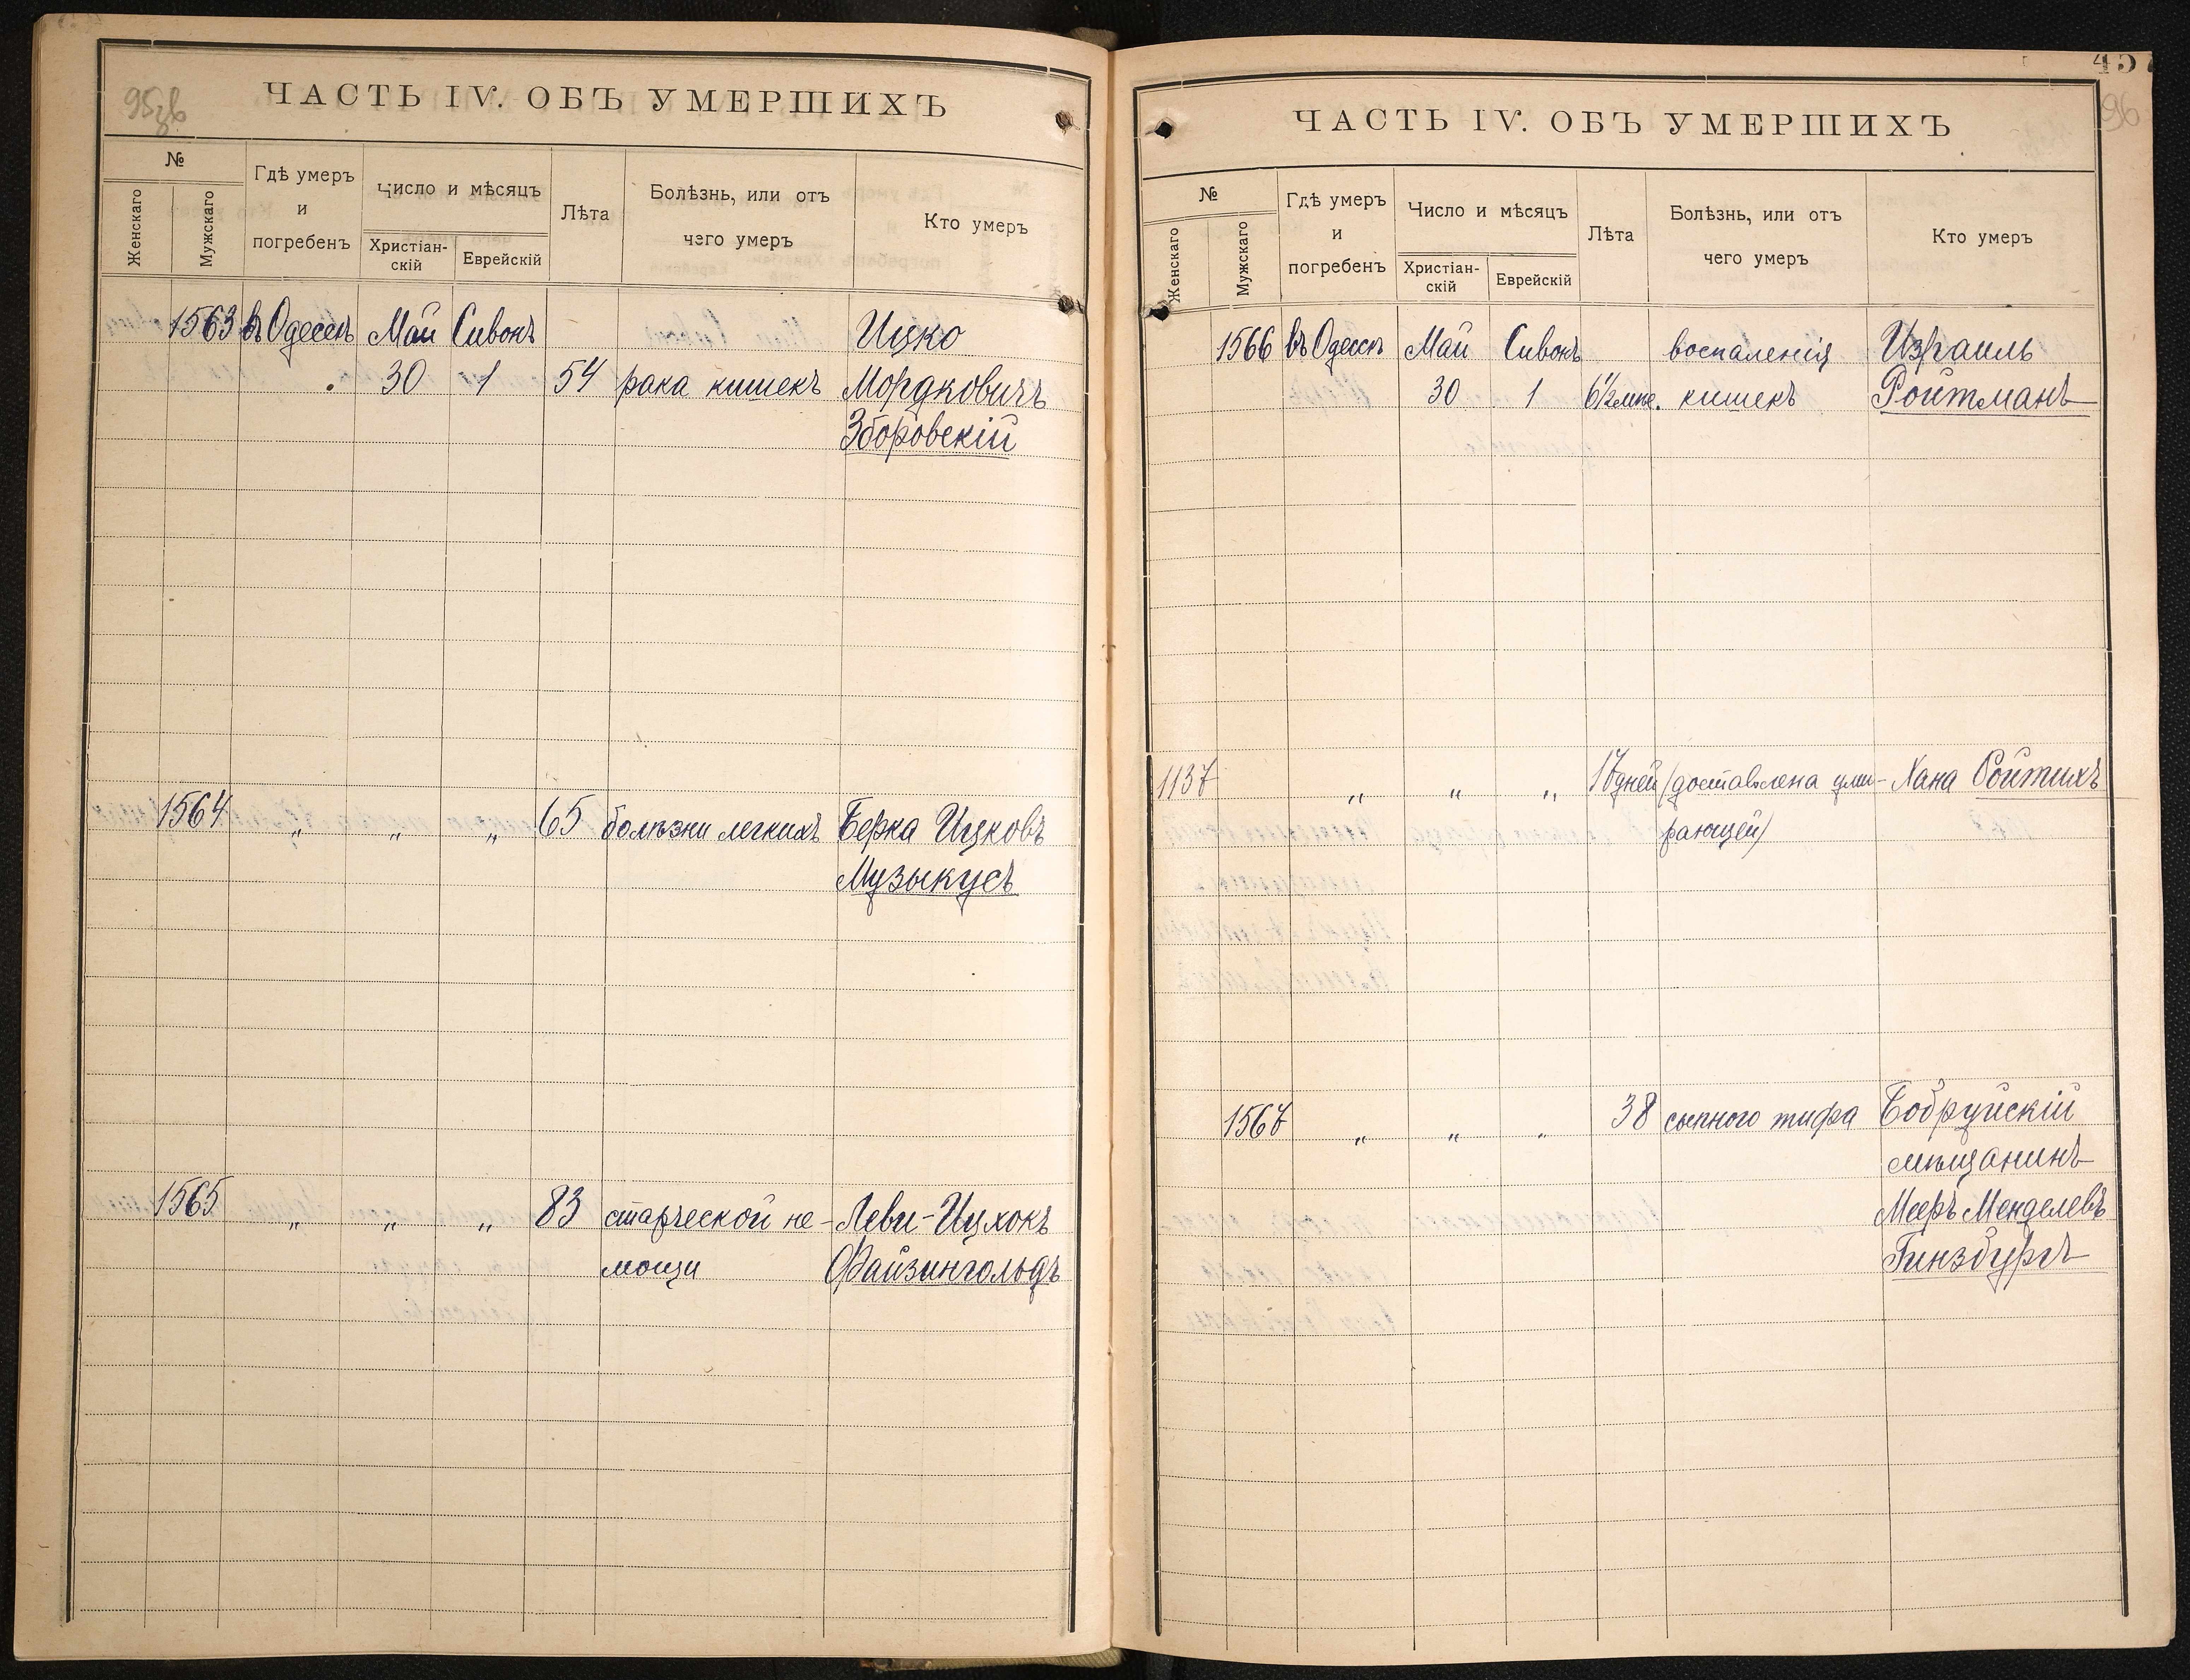 95зв
ЧАСТЬ IV. ОБЪ УМЕРШИХЪ
№
Женскаго
Мужскаго
Гдѣ умеръ
и
погребенъ
Число и мѣсяцъ
Христіан-
скій
Еврейскій
Лѣта
Болѣзнь, или отъ
чего умеръ
Кто умеръ
1563 въ Одессѣ Май Сивонъ Ицко
30 1 54 рака кишекъ Мордковичъ
Зборовскій
1564 „ „ „ 65 болѣзни легкихъ Берка Ицковъ
Музыкусъ
1565 „ „ „ 83 старческой не- Леви-Ицхокъ
мощи Файзингольдъ
457
96
ЧАСТЬ IV. ОБЪ УМЕРШИХЪ
№
Женскаго
Мужскаго
Гдѣ умеръ
и
погребенъ
Число и мѣсяцъ
Христіан-
скій
Еврейскій
Лѣта
Болѣзнь, или отъ
чего умеръ
Кто умеръ
1566 въ Одессѣ Май Сивонъ воспаленія Израиль
30 1 6½ мѣс. кишекъ Ройтманъ
1137 „ „ „ 17 дней (доставлена уми- Хана Ройтихъ
рающей)
1567 „ „ „ 38 сыпного тифа Бобруйскій
мѣщанинъ
Мееръ Менделевъ
Гинзбургъ